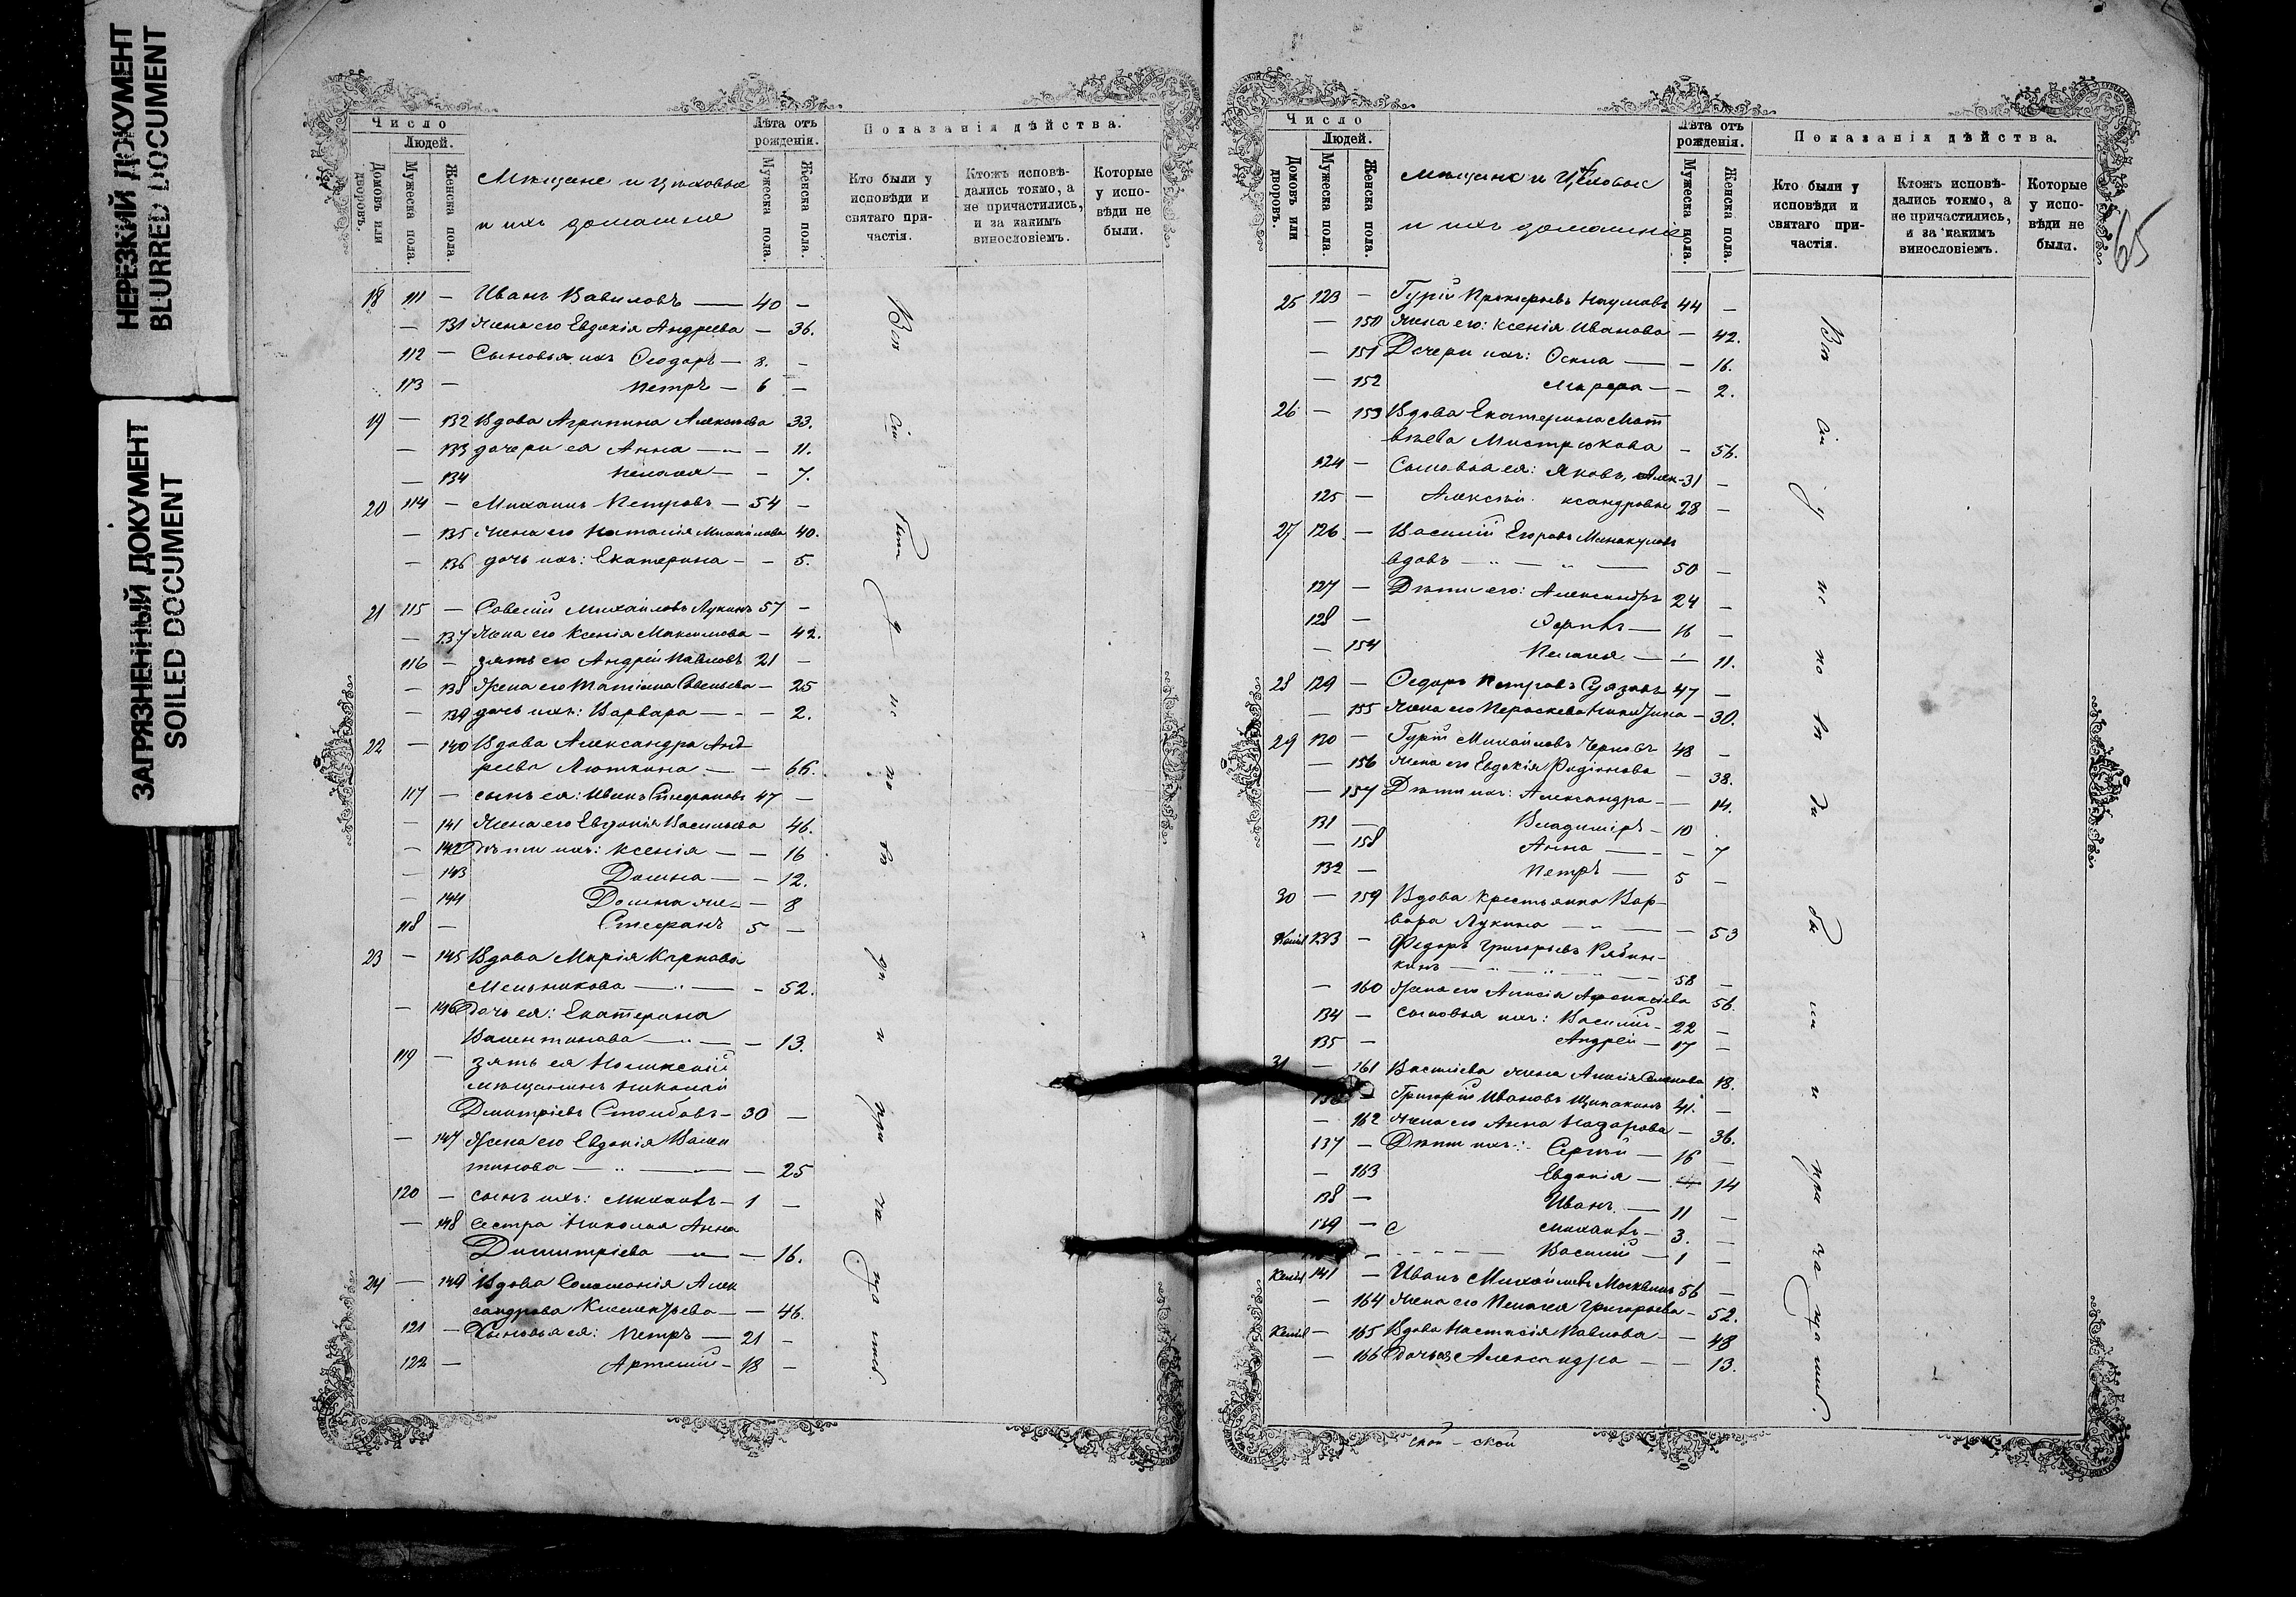 НЕРЕЗКИЙ ДОКУМЕНТ
BLURRED DOCUMENT
ЗАГРЯЗНЕННЫЙ ДОКУМЕНТ
SOILED DOCUMENT
Число
Людей.
Домовъ или дворовъ.
Мужеска пола.
Женска пола.
Мѣщане и цѣховые
и ихъ домашніе
Лѣта отъ рожденія.
Мужеска пола.
Женска пола.
Показанія дѣйства.
Кто были у исповѣди и святаго причастія.
Ктожъ исповѣдались токмо, а не причастились, и за какимъ винословіемъ.
Которые у исповѣди не были.
18 111 – Иванъ Вавиловъ — 40 –
– 131 Жена его Евдокія Андреева – 36.
112 – Сыновья ихъ Ѳеодоръ – 8. –
113 – Петръ – 6 –
19 – 132 Вдова Агрипина Алексѣева 33.
– 133 дочери ея Анна – – 11.
– 134 Пелагея – – 7.
20 114 – Михаилъ Петровъ – 54 –
– 135 Жена его Наталія Михайлова 40.
– 136 дочь ихъ: Екатерина – – 5.
21 115 – Савелій Михайловъ Лукинъ 57 –
– 137 Жена его Ксенія Максимова – 42.
116 – зять его Андрей Павловъ 21 –
– 138 Жена его Татіана Савельева – 25
– 139 дочь ихъ: Варвара – – – 2.
22 – 140 Вдова Александра Анд
реева Люткина – – 66.
117 – сынъ ея: Иванъ Стефановъ 47 –
– 141 Жена его Евдокія Васильева 46.
– 142 Дѣти ихъ: Ксенія – – 16
– 143 Домна – – 12.
– 144 Домна же – – 8
118 – Стефанъ 5 –
23 – 145 Вдова Марія Карпова
Мельникова – – – 52.
– 146 Дочь ея: Екатерина
Валентинова – – – 13.
119 – зять ея
мѣщанинъ Николай
Дмитріевъ Столбовъ – 30 –
– 147 Жена его Евдокія Вален
тинова – – – 25
120 – сынъ ихъ: Михаилъ – 1 –
– 148 сестра Николая Анна
Димитріева – – 16.
24 – 149 Вдова Соломонія Алек
сандрова Климентьева – – 46.
121 – Сыновья ея: Петръ – 21 –
122 – Артемій – 18 –
Всѣ сіи
у
ис
по
вѣ
ди
и
при
ча
ща
лись.
Число
Людей.
Домовъ или дворовъ.
Мужеска пола.
Женска пола.
Мѣщане и Цѣховые
и ихъ домашніе
Лѣта отъ рожденія.
Мужеска пола.
Женска пола.
Показанія дѣйства.
Кто были у исповѣди и святаго причастія.
Ктожъ исповѣдались токмо, а не причастились, и за какимъ винословіемъ.
Которые у исповѣди не были.
65
25 123 – Гурій Прокофьевъ Наумовъ 44 –
– 150 Жена его: Ксенія Иванова – 42.
– 151 Дочери ихъ: Ѳекла – – 16.
– 152 Марѳа – – 2.
26 – 153 Вдова Екатерина Мат
вѣева Мистрюкова – 56.
124 – Сыновья ея: Яковъ, Алек- 31 –
125 – Алексѣй ксандровы 28 –
27 126 – Василій Егоровъ Минакуловъ
вдовъ – – – 50 –
127 – Дѣти его: Александръ 24 –
128 – Осипъ – 16 –
– 154 Пелагея – – 11.
28 129 – Ѳедоръ Петровъ 47 –
– 155 Жена его Пераскева Никитина – 30.
29 130 – Гурій Михайловъ Черновъ 48 –
– 156 Жена его Евдокія Родіонова – 38.
– 157 Дѣти ихъ: Александра – – 14.
131 – Владиміръ – 10
– 158 Анна – – 7
132 – Петръ – 5 –
30 – 159 Вдова крестьянка Вар-
вара Лукина – – – 53
133 – Ѳедоръ Григорьевъ Рябин-
кинъ – – – 58 –
– 160 Жена его Анисія Афонасіева 56.
134 – Сыновья ихъ: Василій – 22 –
135 – Андрей – 17 –
31 – 161 Васильева жена Анисія Семенова 18.
136 – Григорій Ивановъ Щипакинъ 41. –
– 162 Жена его Анна Назарова – 36.
137 – Дѣти ихъ: Сергѣй – 16 –
– 163 Евдокія – 14
138 – Иванъ – 11 –
139 – Михаилъ – 3. –
– Василій – 1 –
141 – Иванъ Михайловъ Москвинъ 56 –
– 164 Жена его Пелагея Григорьева – 52.
– 165 Вдова Настасія Павлова – – 48
– 166 Дочь ея Александра – – 13.
Всѣ
сіи
у
ис
по
вѣ
ди
бы
ли
и
при
ча
ща
лись.
ской – ской